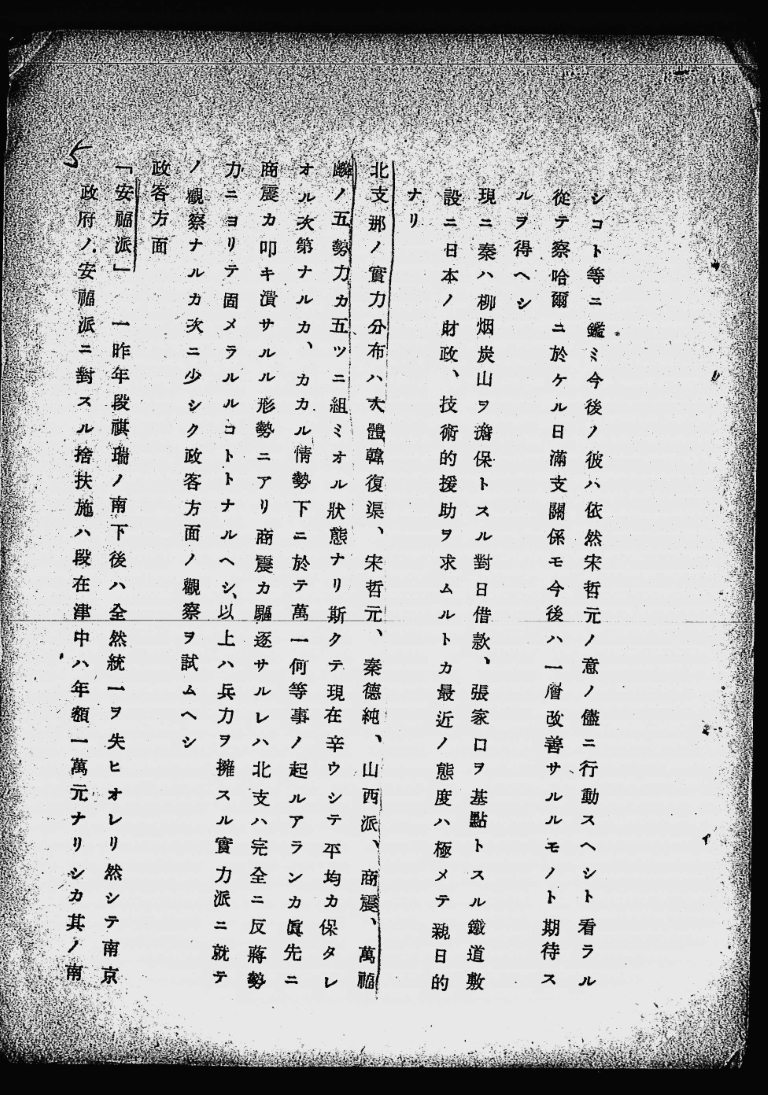 シコト等ニ鑑ミ今後ノ彼ハ依然宋哲元ノ意ノ儘ニ行動スヘシト看ラル
從テ察哈爾ニ於ケル日滿支關係モ今後ハ一層改善サルルモノト期待ス
ルヲ得ヘシ
現ニ秦ハ柳烟炭山ヲ擔保トスル對日借款、張家口ヲ基點トスル鐵道敷
設ニ日本ノ財政、技術的援助ヲ求ムルトカ最近ノ態度ハ極メテ親日的
ナリ
北支那ノ實力分布ハ大體韓復渠、宋哲元、秦德純、山西派、商震、萬福
麟ノ五勢力カ五ツニ組ミオル狀態ナリ斯クテ現在辛ウシテ平均カ保タレ
オル次第ナルカ、カカル情勢下ニ於テ萬一何等事ノ起ルアランカ眞先ニ
商震カ叩キ潰サルル形勢ニアリ商震カ驅逐サルレハ北支ハ完全ニ反蔣勢
力ニヨリテ固メラルルコトトナルヘシ、以上ハ兵力ヲ擁スル實力派ニ就テ
ノ觀察ナルカ次ニ少シク政客方面ノ觀察ヲ試ムヘシ
政客方面
「安福派」 一昨年段祺瑞ノ南下後ハ全然統一ヲ失ヒオレリ然シテ南京
政府ノ安福派ニ對スル捨扶施ハ段在津中ハ年額一萬元ナリシカ其ノ南
5